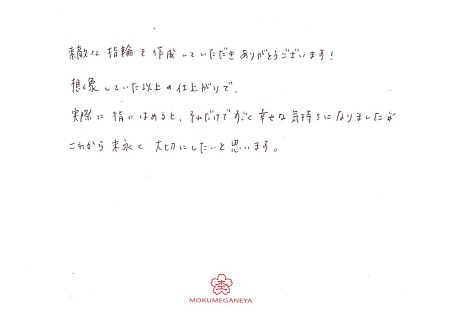 素敵な指輪を作成していただきありがとうございます!
想像していた以上の仕上がりで、
実際に指にはめると、それだけですごく幸せな気持ちになりましたが
これから末永く大切にしたいと思います。
MOKUMEGANEYA